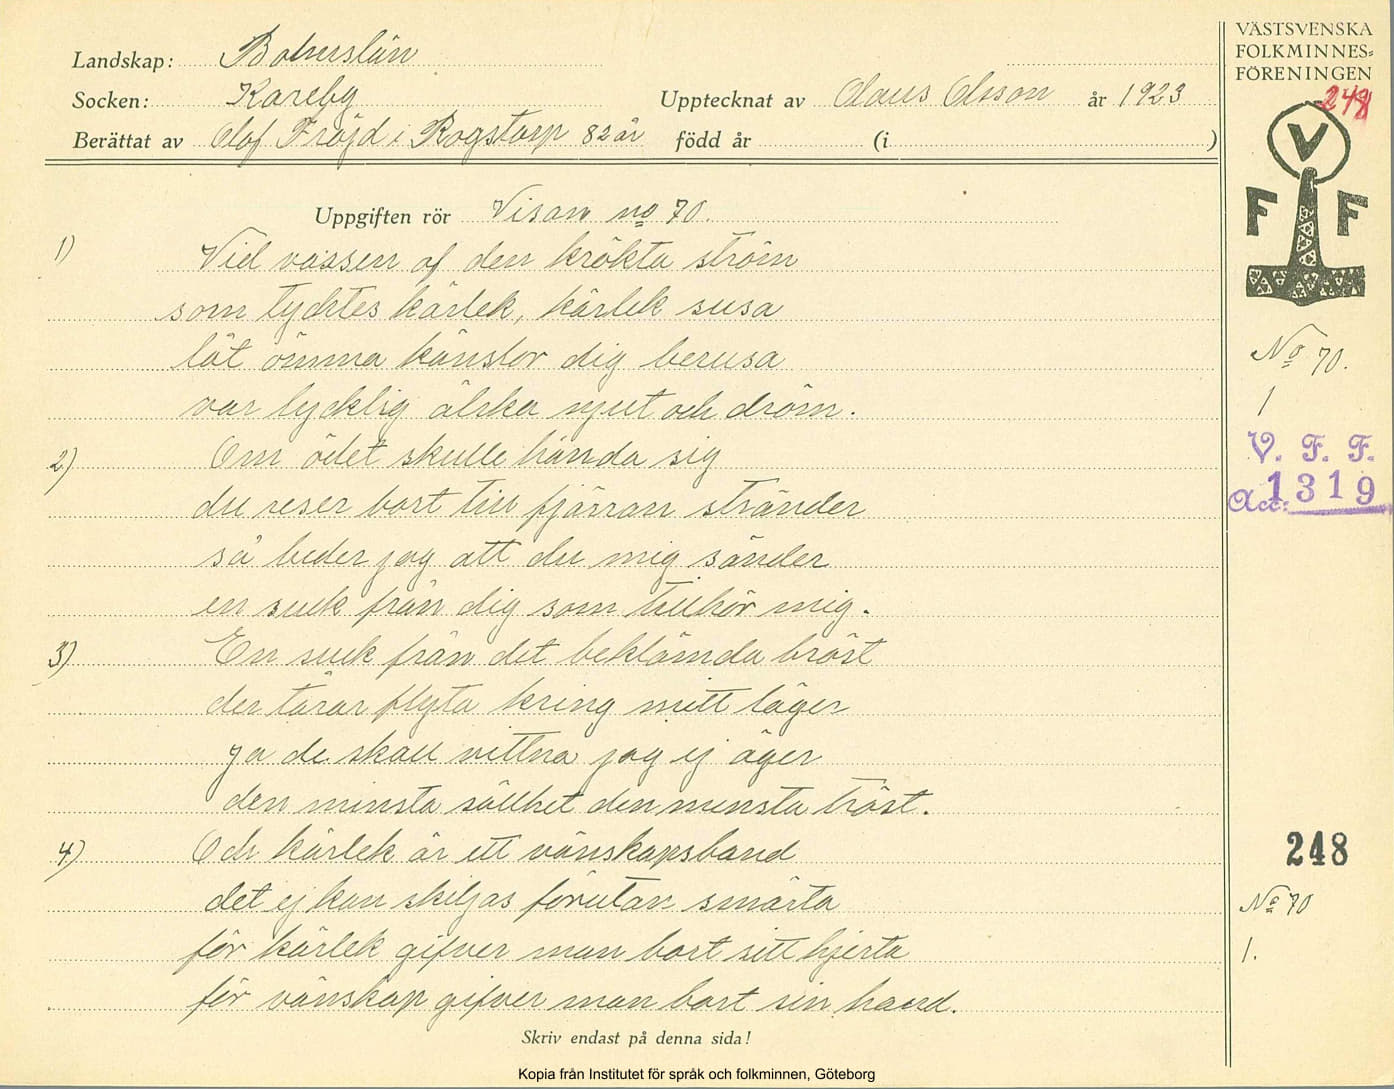 Landskap: Bohuslän
Socken: Kareby
Upptecknat av Claus Olsson år 1923
Berättat av Olof Fröjd i Rogstorp 82 år född år (i )
Uppgiften rör Visan no 70.
1) Vid vassen af den krökta ström
som tycktes kärlek, kärlek susa
låt ömma känslor dig berusa
var lycklig älska njut och dröm.
2) Om ödet skulle hända sig
du reser bort till fjärran stränder
så beder jag att du mig sänder
en suck från dig som tillhör mig.
3) En suck från det beklämda bröst
der tårar flyta kring mitt läger
ja de skall vittna jag ej äger
den minsta sällhet den minsta tröst.
4) Och kärlek är ett vänskapsband
det ej kan skiljas förutan smärta
för kärlek gifver man bort sitt hjerta
för vänskap gifver man bort sin hand.
Skriv endast på denna sida!
VÄSTSVENSKA
FOLKMINNES=
FÖRENINGEN
248
V
F F
No 70.
1
V. F. F.
Acc: 1319
248
No 70
1.
Kopia från Institutet för språk och folkminnen, Göteborg